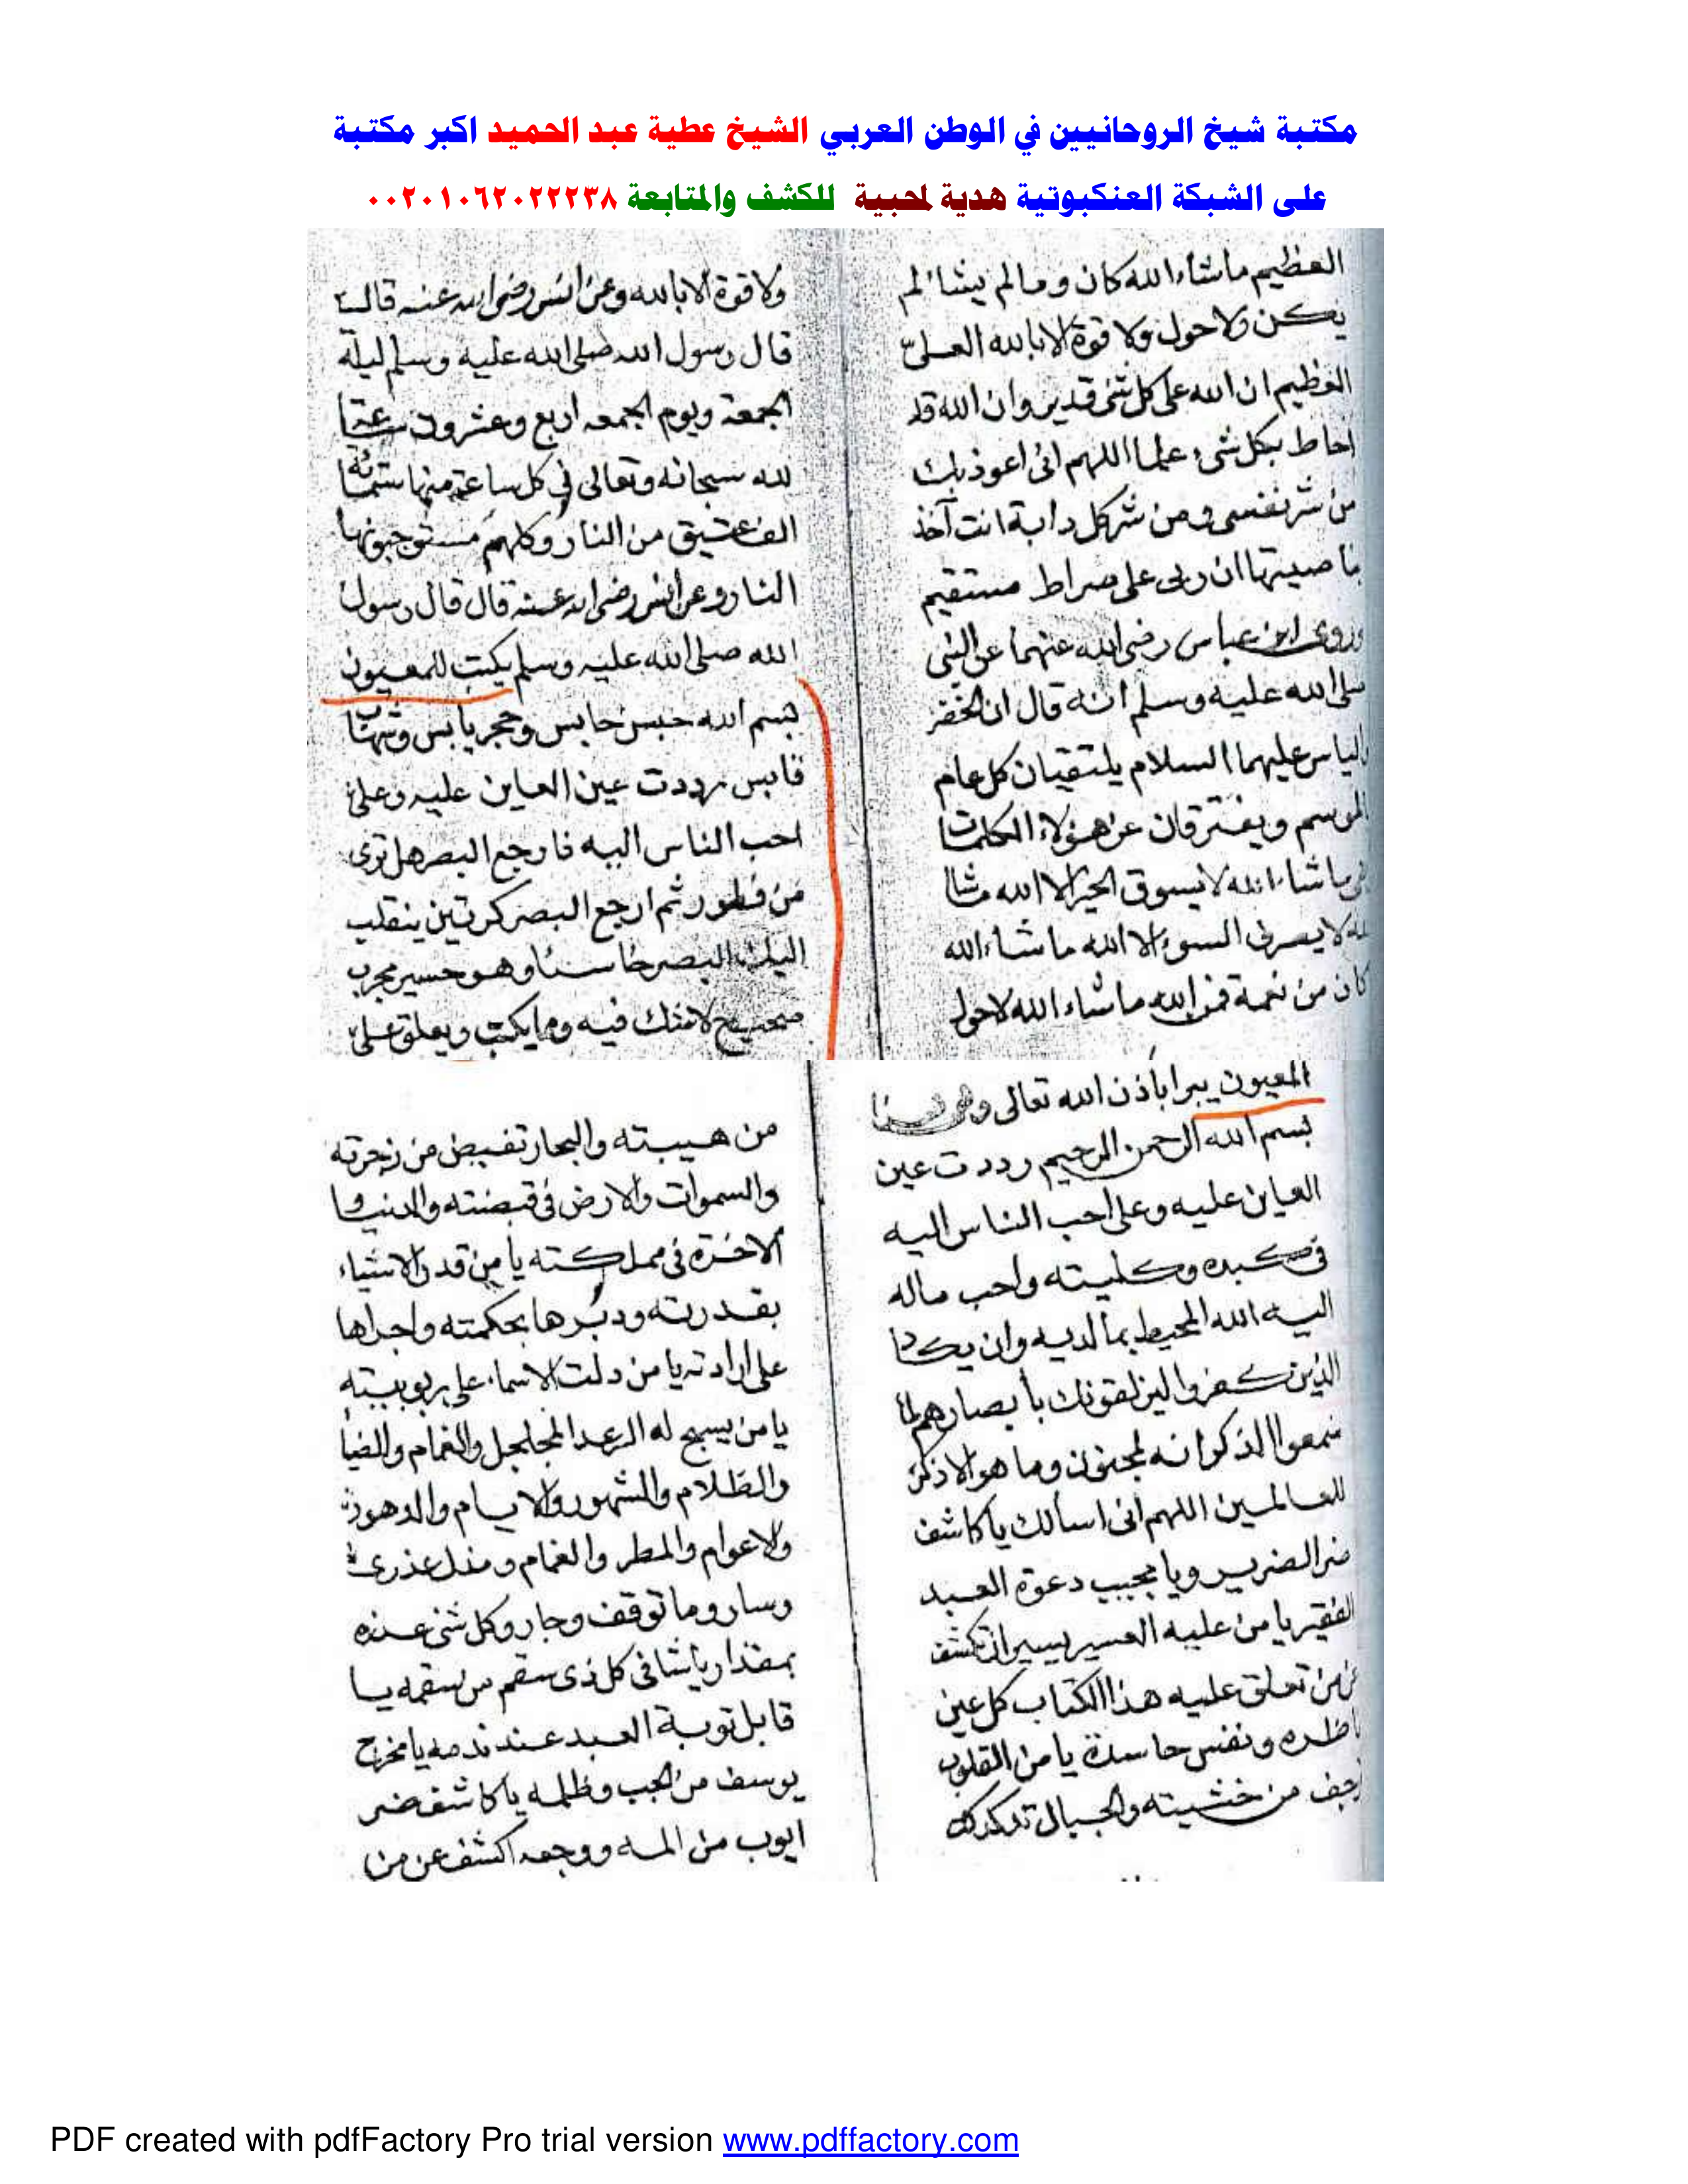 مكتبة شيخ الروحانيين في الوطن العربي الشيخ عطية عبد الحميد اكبر مكتبة
على الشبكة العنكبوتية هدية لمحبية للكشف والمتابعة ٠٠٢٠١٠٦٢٠٢٢٢٣٨
العظيم ماشاء الله كان ومالم يشأ لم
يكن ولا حول ولا قوة الا بالله العلى
العظيم ان الله على كل شئ قدير وان الله قد
احاط بكل شىء علما اللهم انى اعوذ بك
من شر نفسى ومن شر كل دابة انت آخذ
بناصيتها ان ربى على صراط مستقيم
وروى ابن عباس رضى الله عنهما عن النبى
صلى الله عليه وسلم انه قال ان الخضر
والياس عليهما السلام يلتقيان كل عام
الموسم ويفترقان عن هؤلاء الكلمات
ماشاء الله لا يسوق الخير الا الله ماشا
الله لا يصرف السوء الا الله ماشاء الله
كان من نعمة فمن الله ماشاء الله لا حول
ولا قوة الا بالله وعن انس رضى الله عنه قال
قال رسول الله صلى الله عليه وسلم ليلة
الجمعة ويوم الجمعه اربع وعشرون ساعة
لله سبحانه وتعالى فى كل ساعة منها ستمائة
الف عتيق من النار وكلهم مستوجبونها
النار وعن انس رضى الله عنه قال قال رسول
الله صلى الله عليه وسلم يكتب للمعيون
بسم الله حبس حابس وحجر يابس وشهاب
قابس رددت عين العاين عليه وعلى
احب الناس اليه فارجع البصر هل ترى
من فطور ثم ارجع البصر كرتين ينقلب
اليك البصر خاسئا وهو حسير مجرب
صحيح لاشك فيه ومايكتب ويعلق على
المعيون يبرا باذن الله تعالى وهو هذا
بسم الله الرحمن الرحيم رددت عين
العاين عليه وعلى احب الناس اليه
فى كبده وكليته واحب ماله
اليه الله المحيط بما لديه وان يكاد
الذين كفروا ليزلقونك بأبصارهم لما
سمعوا الذكر انه لمجنون وما هو الا ذكر
للعالمين اللهم انى اسألك ياكاشف
ضر الضرير ويا مجيب دعوة العبد
الفقير يا من عليه العسير يسير ان تكشف
عن من تعلق عليه هذا الكتاب كل عين
ناظره ونفس حاسدة يا من القلوب
ترجف من خشيته والجبال تدكدك
من هيبته والبحار تفيض من زجرته
والسموات والارض فى قبضته والدنيا و
الاخرة فى مملكته يا من قدر الاشياء
بقدرته ودبرها بحكمته واجراها
على ارادته يا من دلت الاسماء على ربوبيته
يا من يسبح له الرعد المجلجل والغمام والضيا
والظلام والشهور والايام والدهور
والاعوام والمطر والغمام
وسار وما توقف وجار وكل شئ عنده
بمقدار ياشافى كل ذى سقم من سقمه يا
قابل توبة العبد عند ندمه يا مخرج
يوسف من الجب وظلمه ياكاشف ضر
ايوب من المه ووجعه اكشف عن من
PDF created with pdfFactory Pro trial version www.pdffactory.com